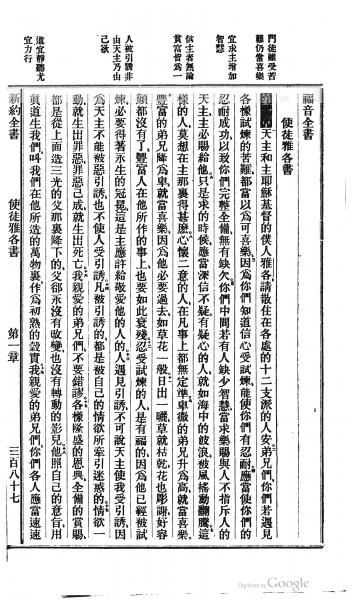 福音全書
使徒雅各書
門徒雖受苦
難仍當喜樂
宜求主增加
智慧
信主者無論
貧富皆爲一
人被引誘非
由天主乃由
己欲
道宜靜聽尤
宜力行
天主和主耶穌基督的僕人雅各請散住在各處的十二支派的人安弟兄們你們若遇見
各樣試煉的苦難都當以爲可喜樂因爲你們知道信心受試煉能使你們有忍耐應當使你們的
忍耐成功以致你們完整全備無有缺欠你們中間若有人缺少智慧當求樂賜與人不指斥人的
天主主必賜給他只是求的時候應當深信不疑有疑心的人就如海中的波浪被風搖動翻騰這
樣的人莫想在主那裏得甚麼心懷二意的人在凡事上都無定準卑微的弟兄升爲高就當喜樂
豐富的弟兄降爲卑就當喜樂因爲他必要過去如草花一般日出一曬草就枯乾花也彫謝好容
顏都沒有了豐富人在他所作的事上也要如此衰殘忍受試煉的人是有福的因爲他已經被試
煉必要得著永生的冠冕這是主應許給敬愛他的人的人遇見引誘不可說天主使我受引誘因
爲天主不能被惡引誘也不使人受引誘凡被引誘的都是被自己的情欲所牽引迷惑的情欲一
動就生出罪惡罪惡已成就生出死亡我親愛的弟兄們不要錯謬各樣隆盛的恩典全備的賞賜
都是從上面造三光的父那裏降下的父卻永沒有改變也沒有轉動的影兒他照自己的意旨用
眞道生我們叫我們在他所造的萬物裏作爲初熟的穀實我親愛的弟兄們你們各人應當速速
新約全書
使徒雅各書
第一章
三百八十七
Digitized by Google